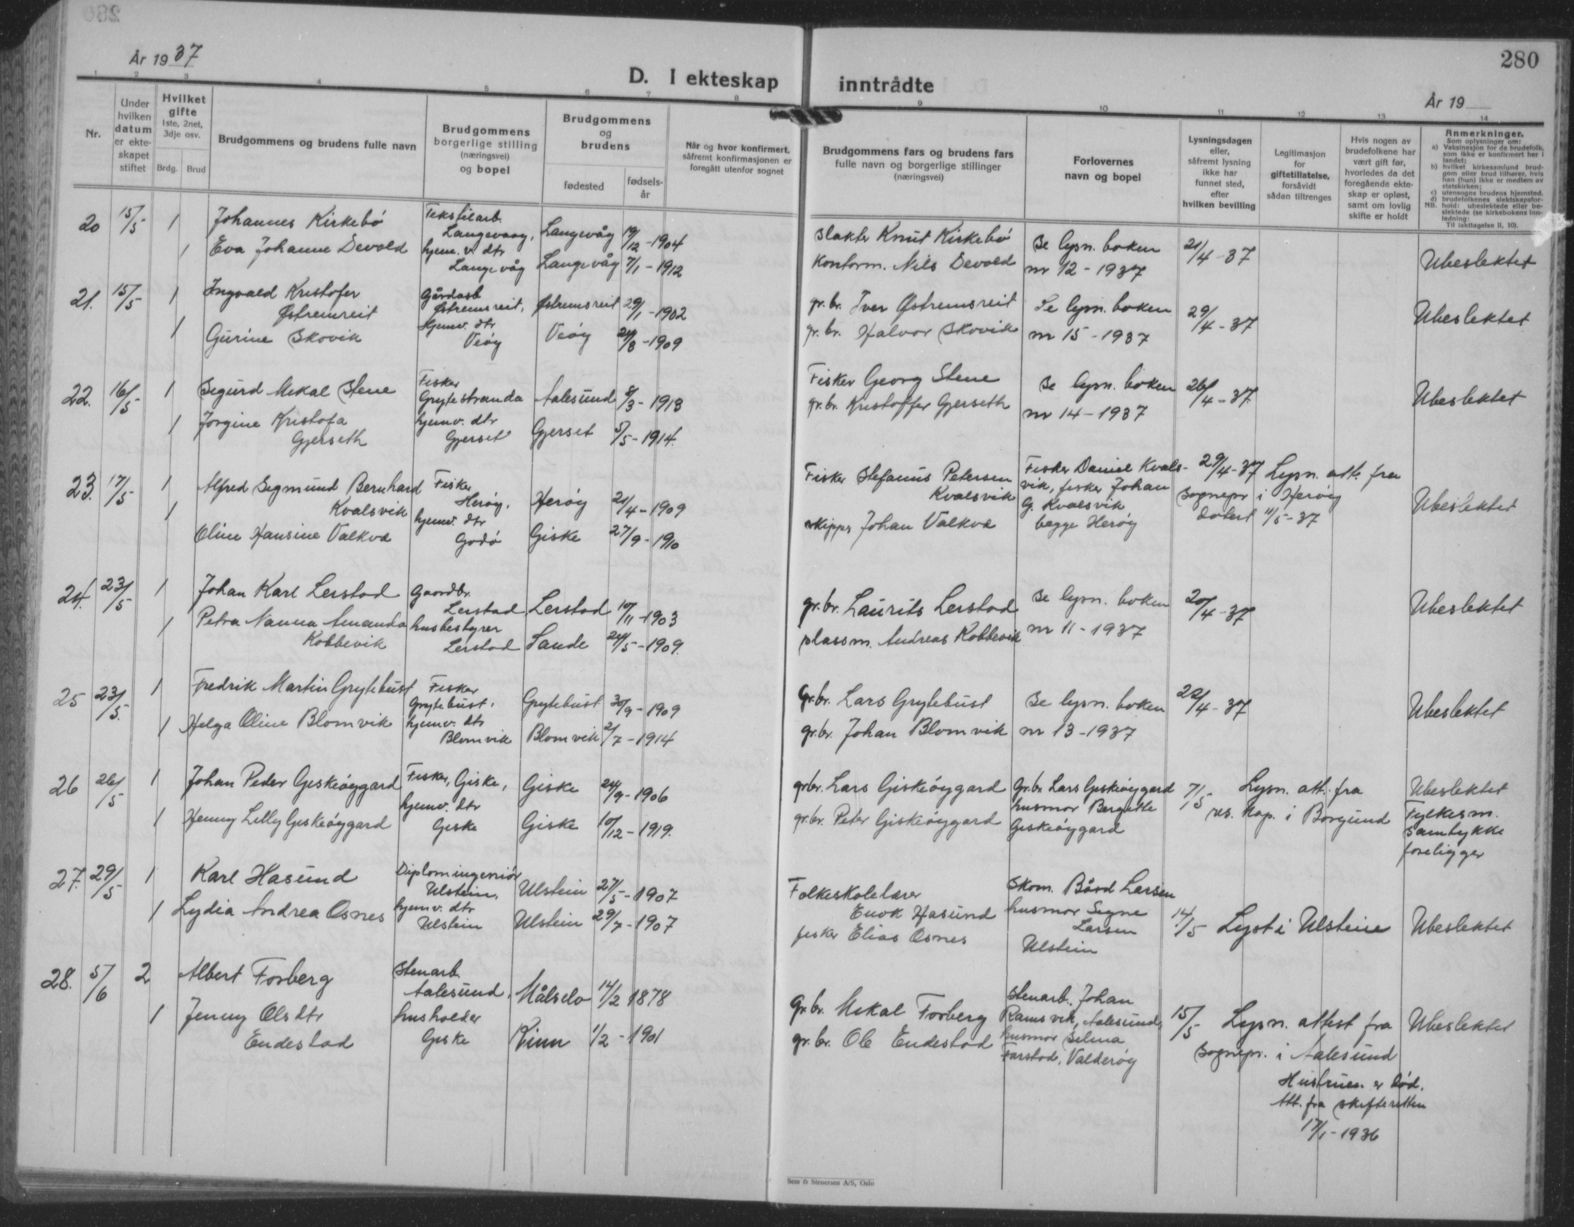 280
År 1937
D. I ekteskap inntrådte
År 19
1 2 3 4 5 6 7 8 9 10 11 12 13 14
Nr.
Under hvilken datum er ekteskapet stiftet
Hvilket gifte 1ste, 2net, 3dje osv.
Brdg. Brud
Brudgommens og brudens fulle navn
Brudgommens borgerlige stilling (næringsvei) og bopel
Brudgommens og brudens
fødested
fødselsår
Når og hvor konfirmert, såfremt konfirmasjonen er foregått utenfor sognet
Brudgommens fars og brudens fars fulle navn og borgerlige stillinger (næringsvei)
Forlovernes navn og bopel
Lysningsdagen eller, såfremt lysning ikke har funnet sted, efter hvilken bevilling
Legitimasjon for giftetillatelse, forsåvidt sådan tiltrenges
Hvis nogen av brudefolkene har vært gift før, hvorledes da det foregående ekteskap er opløst, samt om lovlig skifte er holdt
Anmerkninger.
Som oplysninger om:
20 15/5 1 Johannes Kirkebø Tekstilarb. Langevaag, Langevåg 19/12-1904 Slakter Knut Kirkebø Se lysn. boken 21/4-37
1 Eva Johanne Devold hjemv. dtr Langevåg Langevåg 7/1-1912 Kontorm. Nils Devold nr 12-1937 Ubeslektet
21. 15/5 1 Ingvald Kristofer Østremsreit Gårdarb. Østremsreit, Østremsreit 29/1-1902 gr.br. Iver Østremsreit Se lysn. boken 29/4-37 Ubeslektet
1 Gurine Skovik hjemv. dtr Veøy Veøy 24/8-1909 gr.br. Halvor Skovik nr 15-1937
22. 16/5 1 Sigurd Mikal Stene Fisker Grytestranda Aalesund 8/3-1913 Fisker Georg Stene Se lysn. boken 26/4-37 Ubeslektet
1 Jorgine Kristofa Gjerseth hjemv. dtr Gjerset Gjerset 5/5-1914. gr.br. Kristoffer Gjerseth nr 14-1937
23. 17/5 1 Alfred Sigmund Bernhard Kvalsvik Fisker Herøy, Herøy 21/4-1909 Fisker Stefanus Petersen Kvalsvik Fisker Daniel Kvalsvik, fisker Johan G. Kvalsvik begge Herøy 29/4-37 Lysn. att. fra Sognepr i Herøy datert 11/5-37 Ubeslektet
1 Oline Hansine Valkva hjemv. dtr Godø Giske 27/9-1910 skipper Johan Valkva
24. 23/5 1 Johan Karl Lerstad Gaardbr. Lerstad Lerstad 10/11-1903 gr.br. Laurits Lerstad Se lysn. boken 20/4-37 Ubeslektet
1 Petra Nanna Amanda Kobbevik husbestyrer Lerstad Sande 24/5-1909. plassm. Andreas Kobbevik nr 11-1937
25 23/5 1 Fredrik Martin Grytebust Fisker Grytebust, Grytebust 30/9-1909 Gr.br. Lars Grytebust Se lysn. boken 22/4-37 Ubeslektet
1 Helga Oline Blomvik hjemv. dtr Blomvik Blomvik 2/7-1914 gr.br. Johan Blomvik nr 13-1937
26 26/5 1 Johan Peder Geskeøygard Fisker, Giske, Giske 24/9-1906 grbr. Lars Giskeøygard Gr.br Lars Geskeøygard husmor Bergitte Geskeøygard 7/5 Lysn. att. fra res. kap. i Borgund Ubeslektet Fylkesm. samtykke foreligger
1 Henny Lilly Geskeøygard hjemv. dtr Geske Giske 10/12-1919. gr.br. Peter Giskeøygard
27. 29/5 1 Karl Hasund Diplomingeniør Ulstein, Ulstein 27/5-1907 Folkeskolelærer Enok Hasund Skom. Bård Larsen husmor Signe Larsen Ulstein 14/5 Lyst i Ulsteine Ubeslektet
1 Lydia Andrea Osnes hjemv. dtr Ulstein Ulstein 29/7-1907 fisker Elias Osnes
28. 5/6 2 Albert Forberg Stenarb. Aalesund, Målselv 14/2 1878 Gr.br. Mikal Forberg Stenarb. Johan Ramsvik, Aalesund, husmor Selma Farstad, Valderøy 15/5 Lysn. attest fra Sognepr. i Aalesund Ubeslektet
1 Jenny Olsdtr Endestad husholder Geske Kinn 1/2-1901 gr.br. Ole Endestad
Hustruen er død.
Att. fra skifteretten
17/1-1936
Sem & Stenersen A/S, Oslo